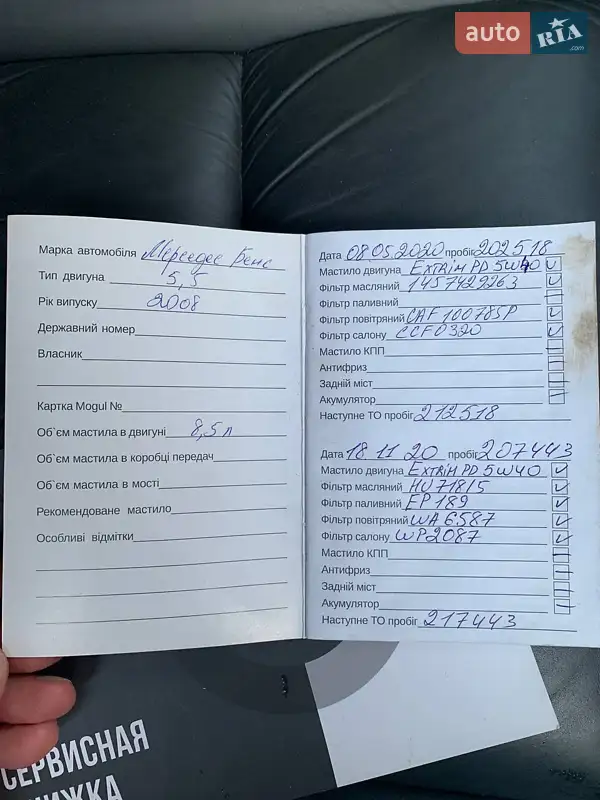 auto RIA .com
Марка автомобіля Мерседес Бенс
Тип двигуна 5,5
Рік випуску 2008
Державний номер
Власник
Картка Mogul №
Об`єм мастила в двигуні 8,5 л
Об`єм мастила в коробці передач
Об`єм мастила в мості
Рекомендоване мастило
Особливі відмітки
Дата 08.05.2020 пробіг 202518
Мастило двигуна EXTRIM PD 5W40
Фільтр масляний 1457429263
Фільтр паливний
Фільтр повітряний CAF100785P
Фільтр салону CCF0320
Мастило КПП
Антифриз
Задній міст
Акумулятор
Наступне ТО пробіг 212518
Дата 18 11 20 пробіг 207443
Мастило двигуна EXTRIM PD 5W40
Фільтр масляний HU718/5
Фільтр паливний EP 189
Фільтр повітряний WA 6587
Фільтр салону WP2087
Мастило КПП
Антифриз
Задній міст
Акумулятор
Наступне ТО пробіг 217443
СЕРВИСНАЯ